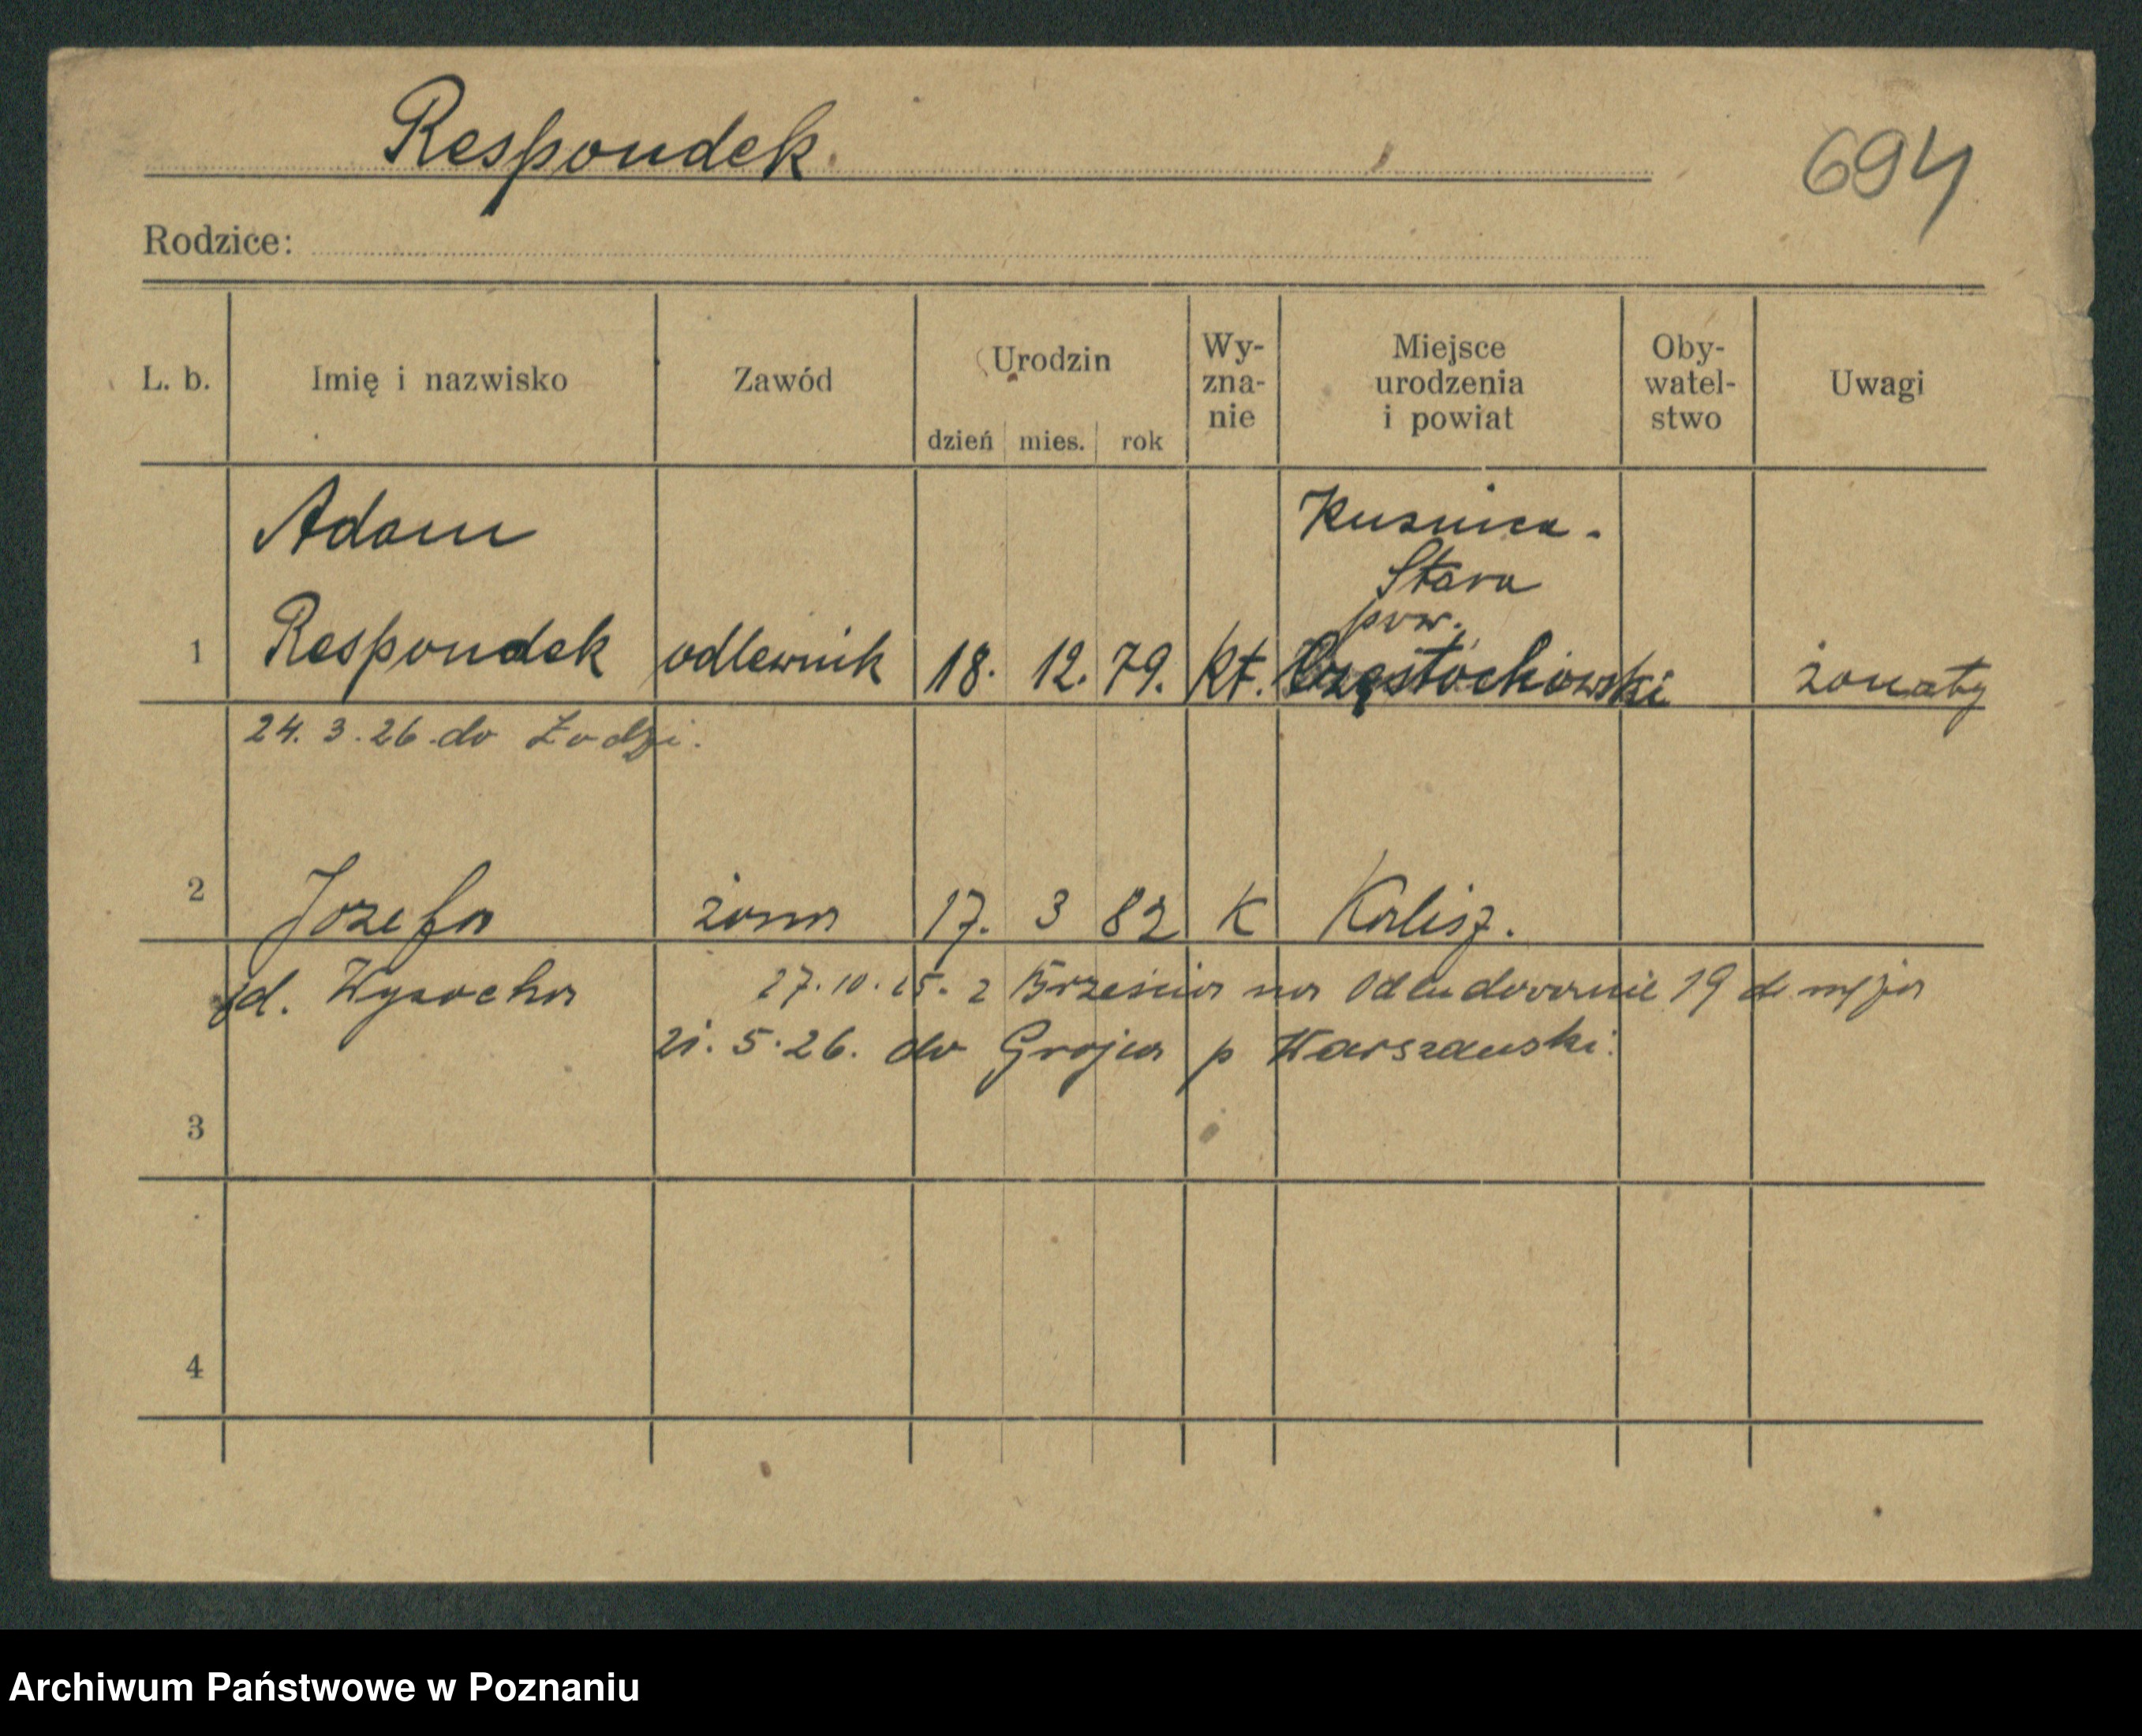 Respondek
694
Rodzice:
L. b. Imię i nazwisko Zawód Urodzin dzień mies. rok Wy-zna-nie Miejsce urodzenia i powiat Oby-watel-stwo Uwagi
Adam Kusnica -
Stara
pow.
1 Respondek odlewnik 18. 12. 79. kt. Częstochowski żonaty
24. 3. 26. do Łodzi.
2 Jozefa żona 17. 3 82 K Kalisz.
Wysocka 27. 10. 25. z Brześcia na 19 do męża
21. 5. 26. do Grojca p Warszawski.
3
4
Archiwum Państwowe w Poznaniu